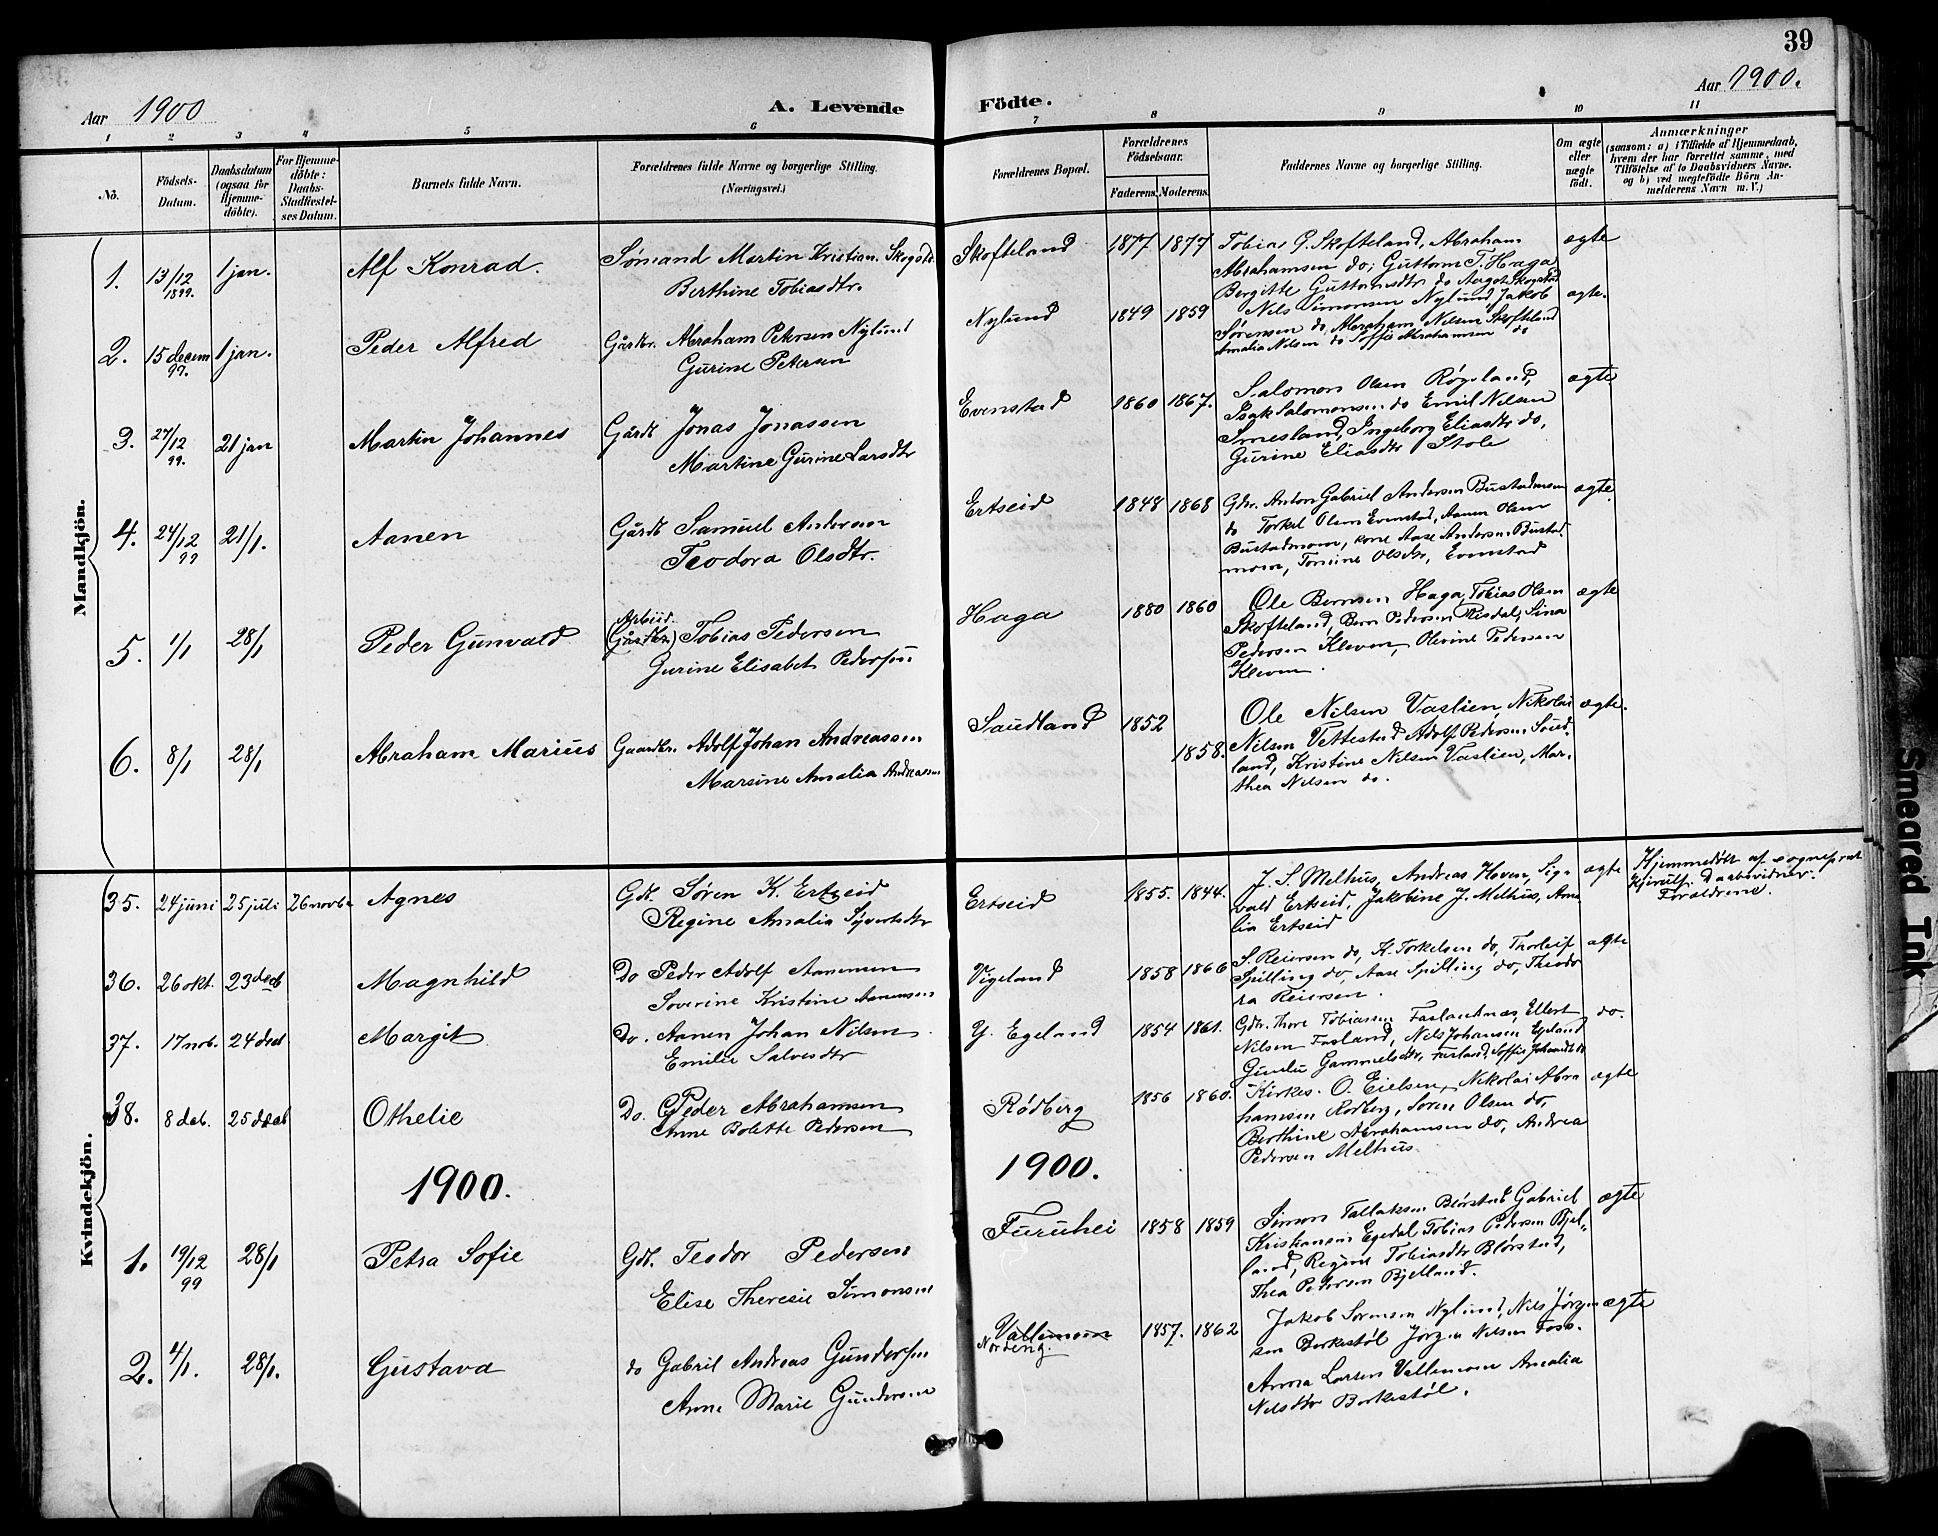 39
Aar 1900
A. Levende Födte.
Aar 1900.
1 2 3 4 5 6 7 8 9 10 11
No.
Födsels-Datum.
Daabsdatum (ogsaa for Hjemmedöbte).
For Hjemmedöbte: Daabs-Stadfæstelses Datum.
Barnets fulde Navn.
Forældrenes fulde Navne og borgerlige Stilling. (Næringsvei.)
Forældrenes Bopæl.
Forældrenes Födselsaar.
Faderens. Moderens.
Faddernes Navne og borgerlige Stilling.
Om ægte eller uægte födt.
Anmærkninger
(saasom: a) i Tilfælde af Hjemmedaab, hvem der har forrettet samme, med Tilföielse af to Daabsvidners Navne. og b) ved uægtefödte Börn Anmelderens Navn m. V.)
Mandkjön.
1. 13/12 1899. 1 jan. Alf Konrad. Sømand Martin Kristian
Berthine Tobiasdtr.
Skofteland 1877 1877 Tobias G. Skofteland, Abraham ægte
Abrahamsen do, Guttorm T. Haga
Bergitte Guttormsdtr do
2. 15 decem 99. 1 jan. Peder Alfred Gårdbr. Abraham Petersen Nylund
Gurine Petersen
Nylund 1849 1859 Nils Simonsen Nylund, Jakob ægte.
Sørensen do, Abraham Nilsen Skofteland
Amalia Nilsen do Soffie Abrahamsen do
3. 27/12 99. 21 jan Martin Johannes Gårdb Jonas Jonassen
Martine Gurine Larsdtr
Evenstad 1860 1867. Salomon Olsen Røgeland, ægte
Isak Salomonsen do Emil Nilsen
Smesland, Ingeborg Eliasdtr do,
Gurine Eliasdtr Stole
4. 24/12 99 21/1. Aanen Gårdb Samuel Andersen
Teodora Olsdtr.
Ertseid 1848 1868 Gbr. Anton Gabriel Andersen Bustadmoen ægte.
do Torkel Olsen Evenstad, Aanen Olsen
Bustadmoen, kone Aase Andersen Bustad-
moen, Tomine Olsdtr, Evenstad
5. 1/1 28/1 Peder Gunvald Arbeid. (Gårdbr.) Tobias Pedersen
Gurine Elisabet Pedersen
Haga 1880 1860 Ole Bernsen Haga, Tobias Olsen ægte
Skofteland, Bern Pedersen Risdal, Sina
Pedersen Kleven, Olevine Pedersen
Kleven.
6. 8/1 28/1 Abraham Marius Gaardbr. Adolf Johan Andreassen
Marsine Amalia Andreassen
Saudland 1852 1858. Ole Nilsen Vaslien, Nikolai ægte.
Nilsen Vettestad Adolf Pedersen Saud-
land, Kristine Nilsen Vaslien, Mar-
thea Nilsen do.
Kvindekjön.
35. 24 juni 25 juli 26 novbr Agnes Gdb. Søren K. Ertzeid
Regine Amalia Syvertsdtr
Ertseid 1855. 1844. J. S. Melhus, Andreas Hoven, Sig- ægte Hjemmedøbt af sogneprest
vald Ertseid, Jakobine J. Melhus, Ama Kjerulf. Daabsvidner:
lia Ertseid Foreldrene.
36. 26 okt. 23 decb Magnhild Do Peder Adolf Aanensen
Soverine Kristine Aanensen
Vigeland 1858 1866 S. Reiersen do, K. Torkelsen do, Thorleif ægte
Spilling do, Aase Spilling do, Theodo
ra Reiersen.
37. 17 nob. 24 decb Margit Do. Aanen Johan Nilsen
Emilie Salvesdtr
Y. Egeland 1854 1861. Gdbr. Thore Tobiassen Faslandnæs, Ellert do.
Nilsen Fasland, Nils Johansen Egeland
Gunelu Gammelsdtr, Fasland, Soffie Johansdtr do
38. 8 deb. 25 decb Othelie Do. Peder Abrahamsen
Anne Bolette Pedersen
Rødberg 1856 1860. Kirkes. O. Eielsen, Nikolai Abra ægte
hamsen Rodberg, Soren Olsen do,
Berthine Abrahamsen do, Andrea
Pedersen Melhus
1900. 1900.
1. 19/12 99 28/1 Petra Sofie Gdb. Teodor Pedersen
Elise Theresie Simonsen
Furuhei 1858 1859 Simon Tallaksen Blørstad, Gabriel ægte
Kristiansen Egedal Tobias Pedersen Bjel-
land, Regine Tobiasdtr Blørstad,
Thea Pedersen Bjelland.
2. 4/1. 28/1. Gustava do Gabril Andreas Gundersen
Anne Marie Gundersen
Vallemoen
Nordeng. 1857. 1862 Jakob Sorensen Nylund, Nils Jørgen ægte
sen Borkestøl Jørgen Nilsen Foss.
Anna Larsen Vallemoen Amalia
Nilsdtr Borkestøl.
Smeared Ink